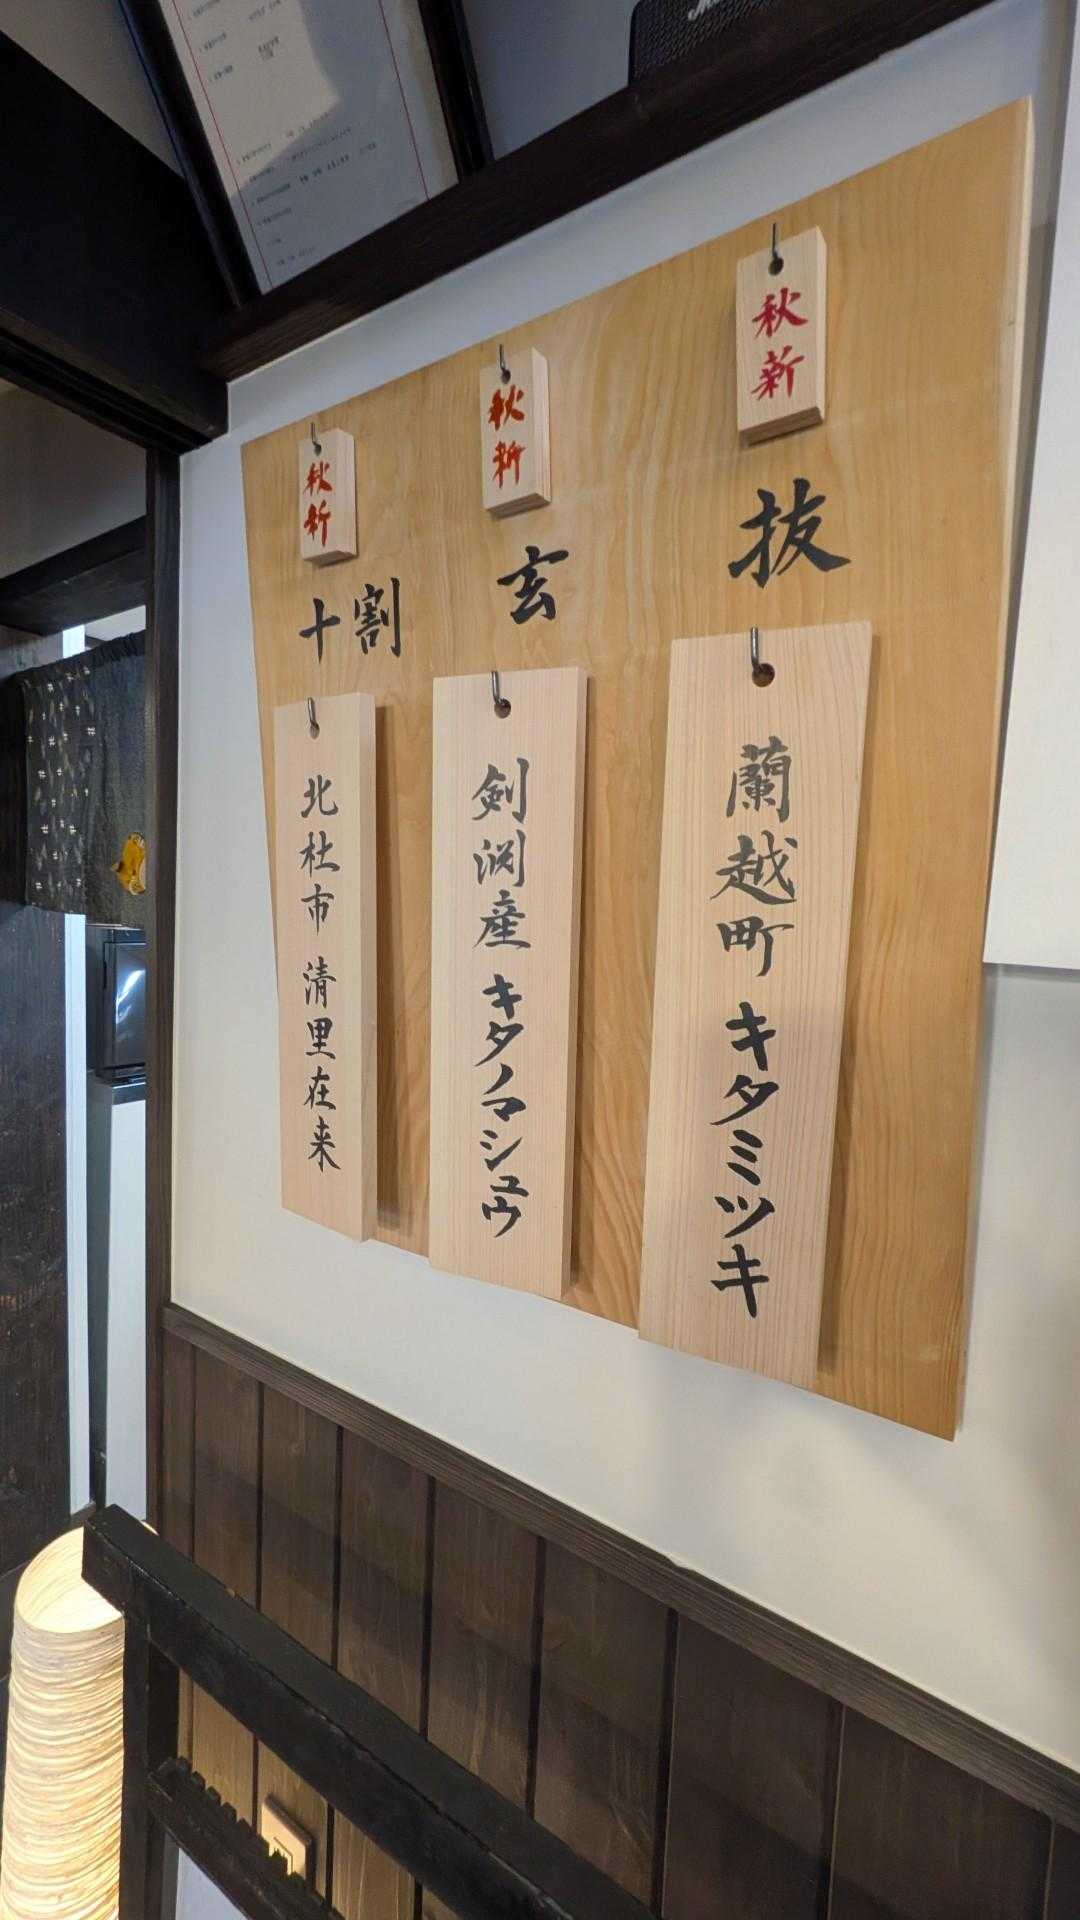 秋新
抜
蘭越町 キタミツキ
秋新
玄
剣淵産 キタノマシュウ
秋新
十割
北杜市 清里在来